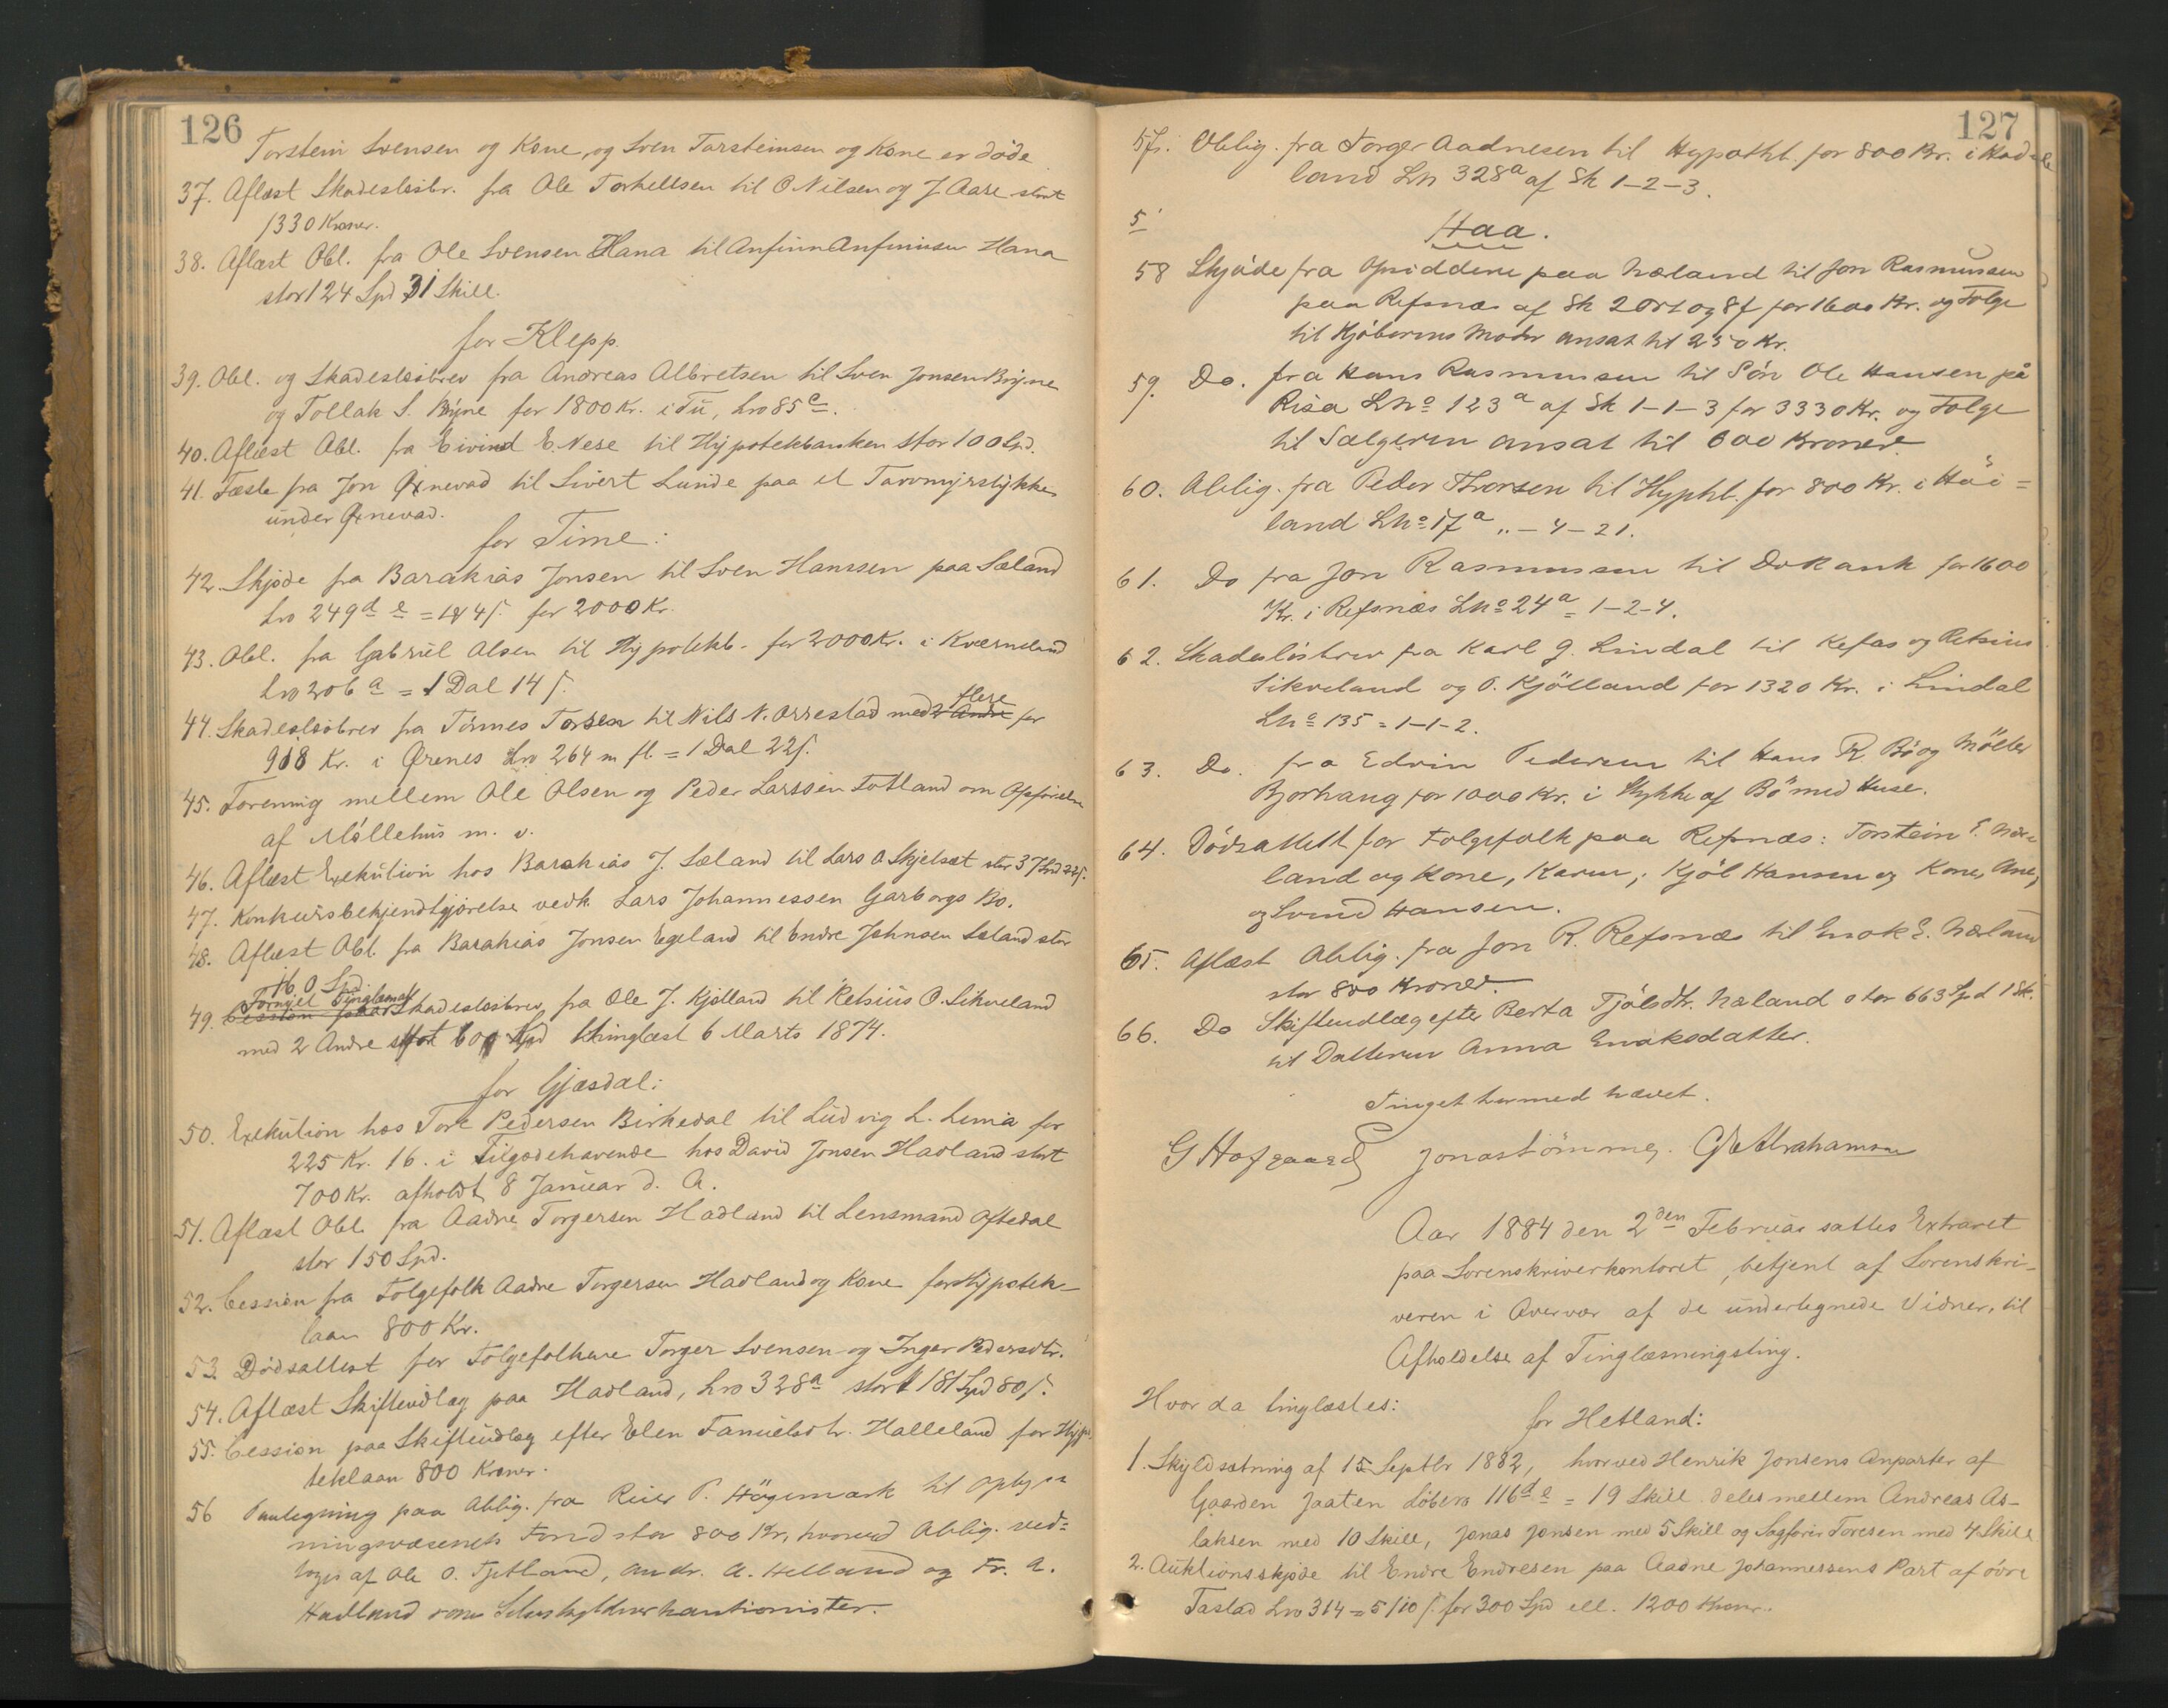 126
Torstein Svensen og Kone, og Sven Torsteinsen og Kone er døde
37. Aflæst Skadesløsbr. fra Ole Torkellsen til O Nilsen og J. Aase stort
1330 Kroner.
38. Aflæst Obl. fra Ole Svensen Hana til Anfinn Anfinnsen Hana
stor 124 Spd 31 Skill.
for Klepp.
39. Obl. og Skadesløsbrev fra Andreas Albretsen til Sven Jonsen Bryne
og Tollak S. Bryne for 1800 Kr. i Tu, Lno 85c.
40. Aflæst Obl. fra Eivind E. Nese til Hypotekbanken stor 100 Spd.
41. Fæste fra Jon Øxnevad til Sivert Lunde paa et Torvmyrstykke
under Øxnevad.
for Time:
42. Skjøde fra Barakias Jonsen til Sven Hanssen paa Sæland
Lno 249d e = 1 4 s. for 2000 Kr.
43. Obl. fra Gabriel Olsen til Hypotekb. for 2000 Kr. i Kværneland
Lno 206a = 1 Dal 14 s.
44. Skadesløsbrev fra Tønnes Torsen til Nils N. Orrestad med 2 Andre Flere for
918 Kr. i Ørenes Lno 264 m fl. = 1 Dal 22 s.
45. Forening mellem Ole Olsen og Peder Larssen Fotland om Opførelse
af Møllehus m. v.
46. Aflæst Exekution hos Barakias J. Sæland til Lars O Skjelsæt stor 37 Spd 22 s.
47. Konkursbekjendtgjørelse vedk. Lars Johannessen Garborgs Bo.
48. Aflæst Obl. fra Barakias Jonsen Egeland til Endre Johnsen Sæland stor
160 Spd.
49. Cession paa Fornyet Tinglæsn. af Skadesløsbrev fra Ole J. Kjølland til Retsius O. Sikveland
med 2 Andre stort 600 Spd thinglæst 6 Marts 1874.
for Gjæsdal:
50. Exekution hos Tore Pedersen Birkedal til Ludvig L. Lima for
225 Kr. 16. i Tilgodehavende hos David Jonsen Hadland stort
700 Kr. afholdt 8 Januar d. A.
51. Aflæst Obl. fra Aadne Torgersen Hadland til Lensmand Oftedal
stor 150 Spd.
52. Cession fra Følgefolk Aadne Torgersen Hadland og Kone for Hypotek-
laan 800 Kr.
53. Dødsattest for Følgefolkene Torger Svensen og Inger Pedersdtr.
54. Aflæst Skifteudlæg paa Hadland, Lno 328a stort 181 Spd 80 s.
55. Cession paa Skifteudlæg efter Elen Samuelsdtr. Halleland for Hypo-
teklaan 800 Kroner.
56 Paategning paa Oblig. fra Reier P. Høgemark til Oplys-
ningsvæsenets Fond stor 800 Kr., hvorved Oblig. ved-
tages af Ole O. Tjetland, Andr. A. Helland og Fr. A.
Hadland som Selvskyldnerkautionister.
127
57. Oblig. fra Torger Aadnesen til Hypothb. for 800 Kr. i Had-
land Ln 328a af Sk 1-2-3.
5
Haa.
58 Skjøde fra Opsidderne paa Næland til Jon Rasmussen
paa Refsnæs af Sk 2 Ort og 8 s for 1600 Kr. og Følge
til Kjøberens Moder ansat til 250 Kr.
59. Do. fra Hans Rasmussen til Søn Ole Hansen på
Risa Lno 123a af Sk 1-1-3 for 3330 Kr. og Følge
til Sælgeren ansat til 600 Kroner.
60. Oblig. fra Peder Thorsen til Hyphb. for 800 Kr. i Høi=
land Lno 17a „-4-21.
61. Do fra Jon Rasmussen til Do Kank for 1600
Kr. i Refsnæs Lno 24a = 1-2-4.
62. Skadesløsbrev fra Karl G. Lindal til Kefas og Retsius
Sikveland og O. Kjølland for 1320 Kr. i Lindal
Lno 135 = 1-1-2.
63. Do. fra Edvin Pedersen til Hans R Bø og Møller
Bjorhaug for 1000 Kr. i Stykke af Bø med Huse.
64. Dødsattest for Følgefolk paa Refsnæs: Torstein E. Nær-
land og Kone, Karen; Kjøl Hansen og Kone, Ane,
og Svend Hansen.
65. Aflæst Oblig. fra Jon R. Refsnæs til Enok E. Nærland
stor 800 Kroner.
66. Do Skifteudlæg efter Berta Tjølsdtr. Næland stor 663 Spd 1 Sk.
til Datteren Anna Enoksdatter.
Tinget hermed hævet.
G Hofgaard Jonas Tømmer. Abrahamsen
Aar 1884 den 2den Februar sattes Extraret
paa Sorenskriverkontoret, betjent af Sorenskri-
veren i Overvær af de undertegnede Vidner, til
Afholdelse af Tinglæsningsting.
Hvor da tinglæstes:
for Hetland:
1. Skyldsætning af 15 Septbr 1882, hvorved Henrik Jonsens Anparter af
Gaarden Jaaten Løbeno 116d e = 19 Skill. deles mellem Andreas As-
laksen med 10 Skill, Jonas Jonsen med 5 Skill og Sagfører Toresen med 4 Skill
2. Auktionsskjøde til Endre Endresen paa Aadne Johannessens Part af øvre
Tastad Lno 314 = 5/10 s. for 300 Spd ell. 1200 Kroner.